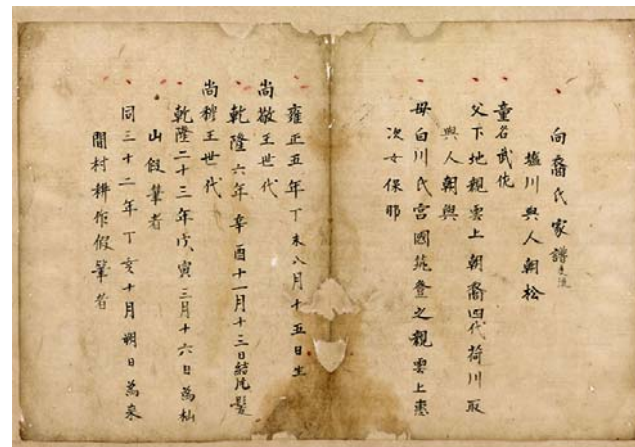 向裔氏家譜支流
塩川與人朝松
童名武佐
父下地親雲上朝裔四代荷川取
與人朝與
母白川氏宮國筑登之親雲上恵
次女保那
雍正五年丁未八月十五日生
尚敬王世代
乾隆六年辛酉十一月十三日結片髮
尚穆王世代
乾隆二十三年戊寅三月十六日為杣
山假筆者
同三十二年丁亥十月朔日為來
間村耕作假筆者